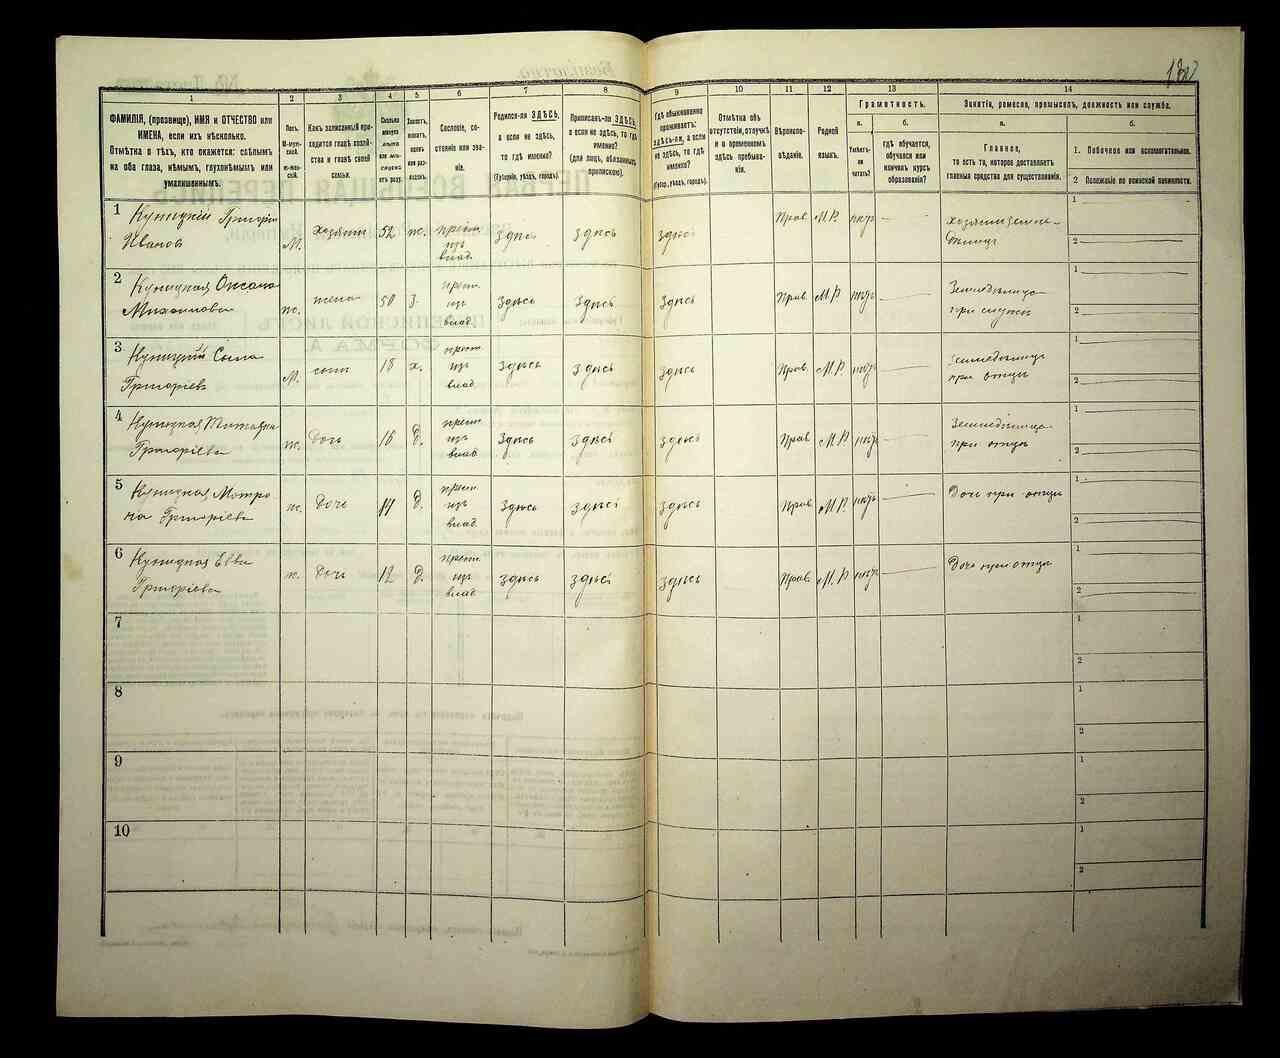 1
2
3
4
5
6
7
8
9
10
11
12
13
14
ФАМИЛІЯ, (прозвище), ИМЯ и ОТЧЕСТВО или
ИМЕНА, если ихъ нѣсколько.
Отмѣтка о тѣхъ, кто окажется: слѣпымъ
на оба глаза, нѣмымъ, глухонѣмымъ или
умалишеннымъ.
Полъ.
М-муж-
ской.
ж-жен-
скій.
Какъ записанный при-
ходится главѣ хозяй-
ства и главѣ своей
семьи.
Сколько
минуло
лѣтъ
или мѣ-
сяцевъ
отъ роду.
Холостъ,
женатъ,
вдовъ
или раз-
веденъ.
Сословіе, со-
стояніе или зва-
ніе.
Родился-ли ЗДѢСЬ,
а если не здѣсь,
то гдѣ именно?
(Губернія, уѣздъ, городъ).
Приписанъ-ли ЗДѢСЬ,
а если не здѣсь, то гдѣ
именно?
(для лицъ, обязанныхъ
припискою).
Гдѣ обыкновенно
проживаетъ:
ЗДѢСЬ-ли, а если
не здѣсь, то гдѣ
именно?
(Губер., уѣздъ, городъ).
Отмѣтка объ
отсутствіи, отлучкѣ
и о временномъ
здѣсь пребыва-
ніи.
Вѣроиспо-
вѣданіе.
Родной
языкъ.
Грамотность.
а.
Умѣетъ-
ли
читать?
б.
гдѣ обучается,
обучался или
кончилъ курсъ
образованія?
Занятія, ремесло, промыселъ, должность или служба.
а.
Главное,
то есть то, которое доставляетъ
главныя средства для существованія.
б.
1. Побочное или вспомогательное.
2 Положеніе по воинской повинности.
1
Куницкій Григорій
Иванов
М.
хозяинъ
52
ж.
крест.
изъ
влад.
здѣсь
здѣсь
здѣсь
Прав
М.Р.
нѣтъ
хозяинъ земле-
дѣлецъ
1
2
2
Куницкая Оксана
Михаилова
ж.
жена
50
З.
крест.
изъ
влад.
Здѣсь
Здѣсь
Здѣсь
Прав.
М.Р
нѣтъ
Земледѣлица
при мужѣ
1
2
3
Куницкій
Григоріев
М.
сынъ
18
х.
крест.
изъ
влад
Здѣсь
здѣсь
здѣсь
Прав.
М.Р
нѣтъ
Земледѣлецъ
при отцѣ
1
2
4
Куницкая
Григоріева
ж.
Дочь
16
Д.
крест
изъ
влад
Здѣсь
здѣсь
здѣсь
Прав
М.Р
нѣтъ
Земледѣлица
при отцѣ
1
2
5
Куницкая Мотро
на Григоріева
ж.
Дочь
14
Д.
крест.
изъ
влад.
Здѣсь
здѣсь
здѣсь
Прав
М.Р.
нѣтъ
Дочь при отцѣ
1
2
6
Куницкая Евва
Григоріева
ж.
Дочь
12
Д.
крест.
изъ
влад.
здѣсь
здѣсь
здѣсь
Прав
М.Р
нѣтъ
Дочь при отцѣ
1
2
7
1
2
8
1
2
9
1
2
10
1
2